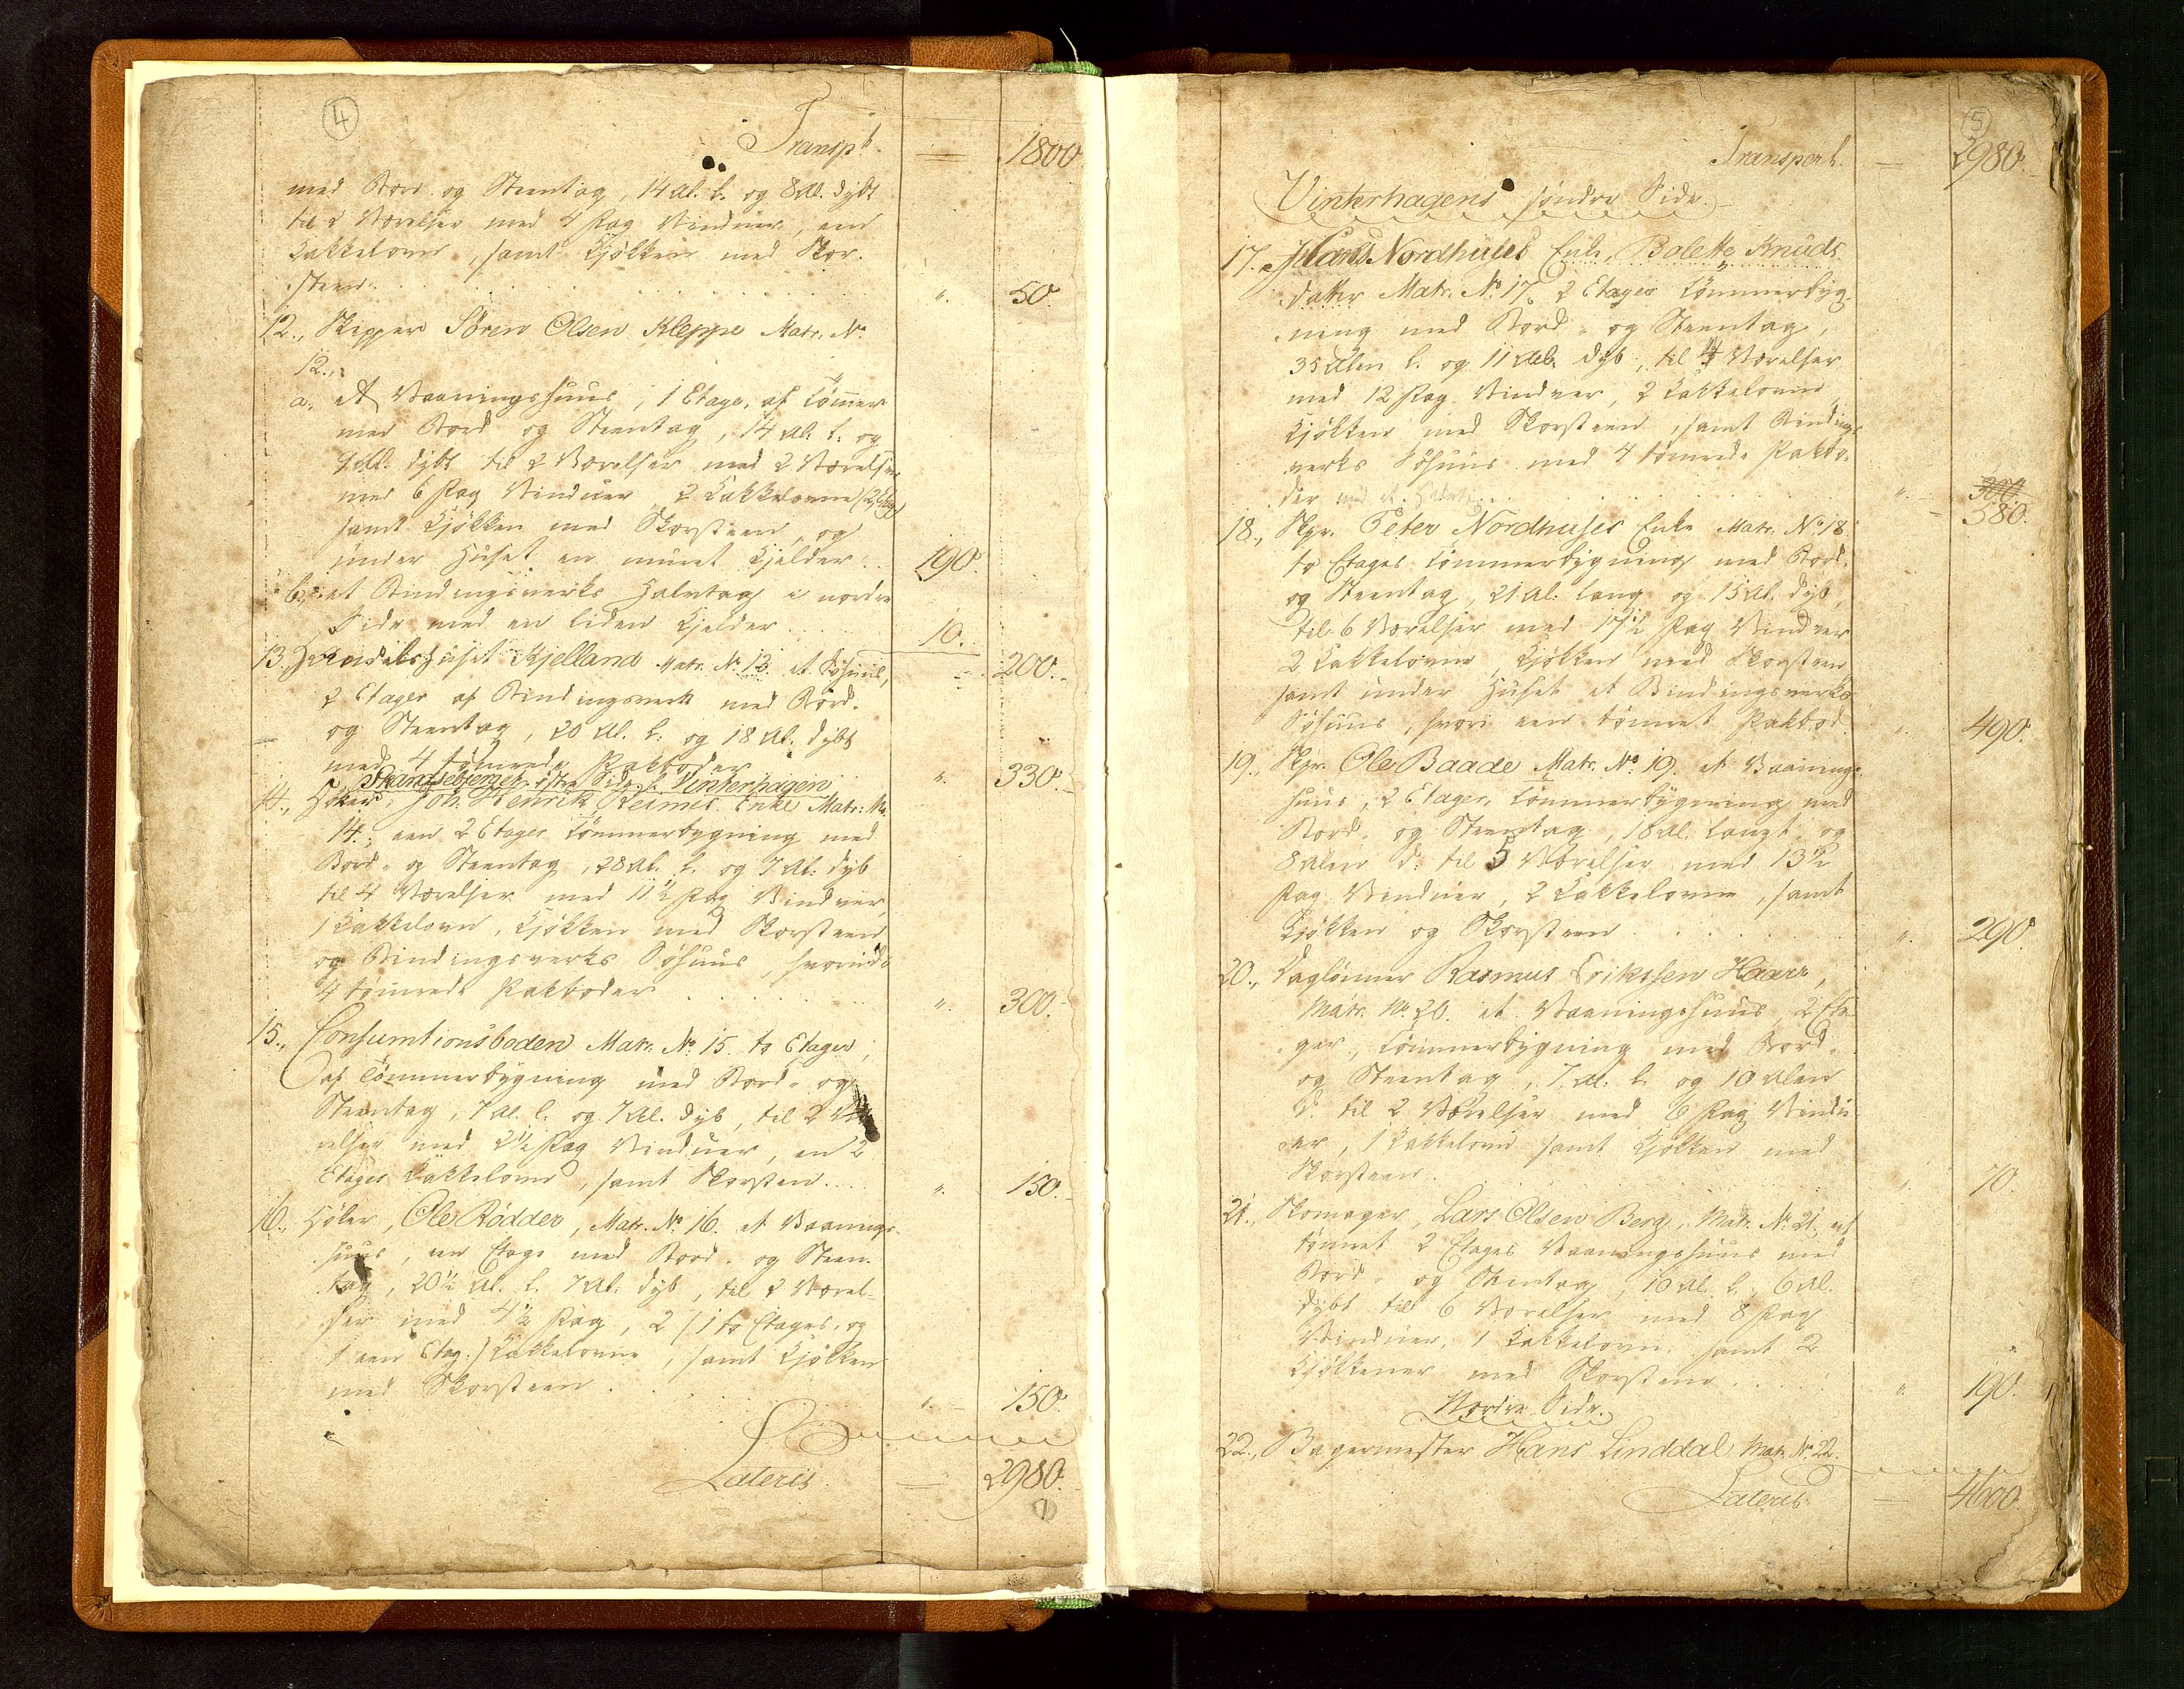 4
Transpt. — 1800
med Bord og Steentag, 14 Al. l. og 8 Al. dybt
til 2 Værelser med 4 Fag Vinduer, een
Kakkelovn, samt Kjökken med Skor-
steen. „ 50.
12., Skipper Sören Olsen Kleppe Matr. No
12.,
a., et Vaaningshuus, 1 Etage, af Tömmer
med Bord og Steentag, 14 Al. l. og
9 Al. dybt til 2 Værelser med 2 Værelser
med 6 Fag Vinduer 2 Kakkelovne (2 Etag.)
samt Kjökken med Skorsteen, og
under Huset en muret Kjelder. 190.
b., et Bindingsverks Halvtag i nordre
Side med en liden Kjelder 10.
13. Handelshuset Kjelland Matr. No 13. et Söhuus, 200.
2 Etager af Bindingsverk med Bord-
og Steentag, 20 Al. l. og 18 Al. dybt
med 4 tömrede Pakboder „ 330.
Strandsebjerget östre Side Vinterhagen
14., Höker, Joh. Henrik Reimes Enke Matr: No.
14., een 2 Etages Tömmerbygning med
Bord- og Steentag, 28 Al. l. og 7 Al. dyb
til 4 Værelser med 11½ Fag Vinduer,
1 Kakkelovn, Kjökken med Skorsteen
og Bindingsverks Söhuus, hvorudi
4 tömrede Pakboder „ 300.
15., Consumtionsboden Matr. No 15. to Etager,
af Tömmerbygning med Bord- og
Steentag, 7 Al. l. og 7 Al. dyb, til 2 Væ
relser med 2½ Fag Vinduer, en 2
Etages Kakkelovn, samt Skorsten. „ 150.
16., Höker, Ole Rödder, Matr. No 16. et Vaanings-
huus, een Etage med Bord- og Steen-
tag, 20½ Al. l. 7 Al. dyb, til 2 Værel-
ser med 4½ Fag, 2 (1 to Etages, og
1 een Etag.) Kakkelovne, samt Kjökken
med Skorsteen. „ 150.
Lateris — 2980.
5
Transport. — 2980.
Vinterhagens söndre Side.
17. Nordhuses Enke, Bolette Knuds
datter Matr. No 17. 2 Etages Tömmerbyg-
ning med Bord- og Steentag,
35 Alen l. og 11 Al. dyb, til 4 Værelser
med 12 Fag Vinduer, 2 Kakkelovne
Kjökken med Skorsteen, samt Bindings
verks Söhuus med 4 tömrede Pakbo-
der „ 300.
580.
18., Skpr. Peter Nordhuses Enke Matr. No 18.
to Etages Tömmerbygning med Bord-
og Steentag, 21 Al. lang og 15 Al. dyb,
til 6 Værelser med 17½ Fag Vinduer
2 Kakkelovne, Kjökken med Skorsteen
samt under Huset et Bindingsverks
Söhuus, hvori een tömret Pakbod. „ 490.
19., Skpr. Ole Baade Matr. No 19. et Vaanings-
huus, 2 Etages, Tömmerbygning med
Bord- og Steentag, 18 Al. langt og
8 Alen d. til 5 Værelser med 13½
Fag Vinduer, 2 Kakkelovne, samt
Kjökken og Skorsteen „ 290.
20., Daglönner Rasmus Erikssen Haar,
Matr. No. 20. et Vaaningshuus, 2 Eta
ger, Tömmerbygning med Bord-
og Steentag, 7 Al. l. og 10 Alen
d. til 2 Værelser med 6 Fag Vindu
er, 1 Kakkelovn samt Kjökken med
Skorsteen. „ 70.
21., Skomager, Lars Olsen Berg, Matr. No 21. et
tömret 2 Etages Vaaningshuus med
Bord- og Steentag, 10 Al. l., 6 Al.
dybt til 6 Værelser med 8 Fag
Vinduer, 1 Kakkelovn, samt 2
Kjökkener med Skorsteen. „ 190.
Nordre Side.
22., Bagermester Hans Linddal Matr. No 22.
Lateris — 4600.